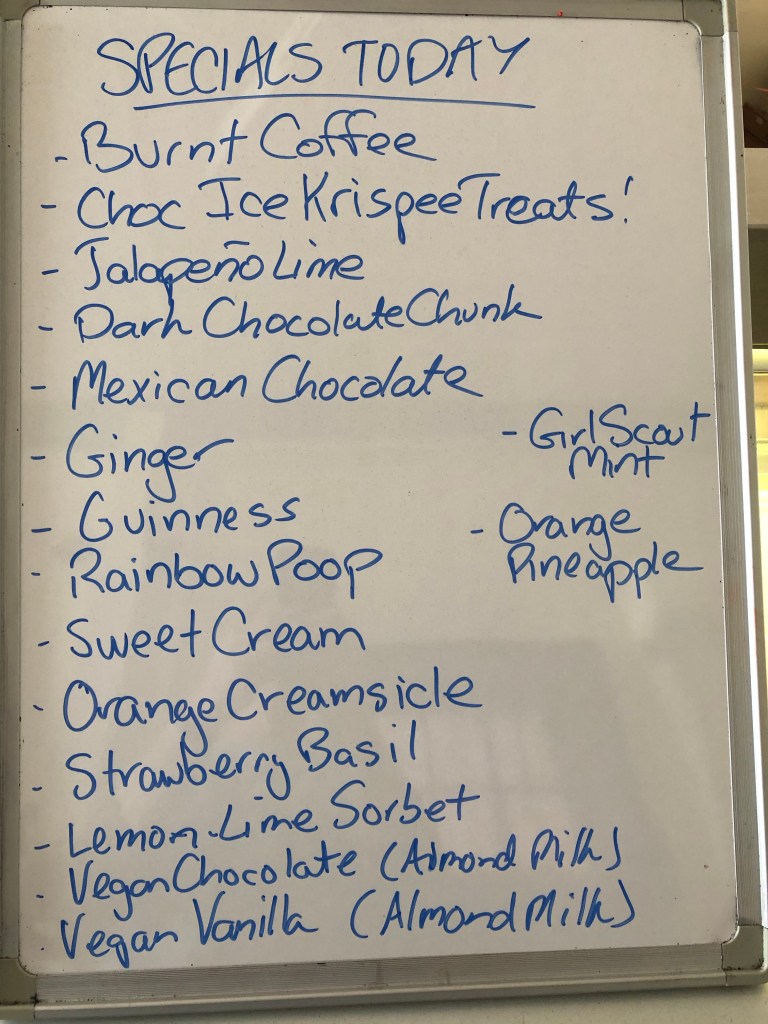 SPECIALS TODAY
- Burnt Coffee
- Choc Ice Krispee Treats!
- Jalapeño Lime
- Dark Chocolate Chunk
- Mexican Chocolate
- Ginger
- Guinness
- Rainbow Poop
- Sweet Cream
- Orange Creamsicle
- Strawberry Basil
- Lemon-Lime Sorbet
- Vegan Chocolate (Almond Milk)
- Vegan Vanilla (Almond Milk)
- Girl Scout
Mint
- Orange
Pineapple